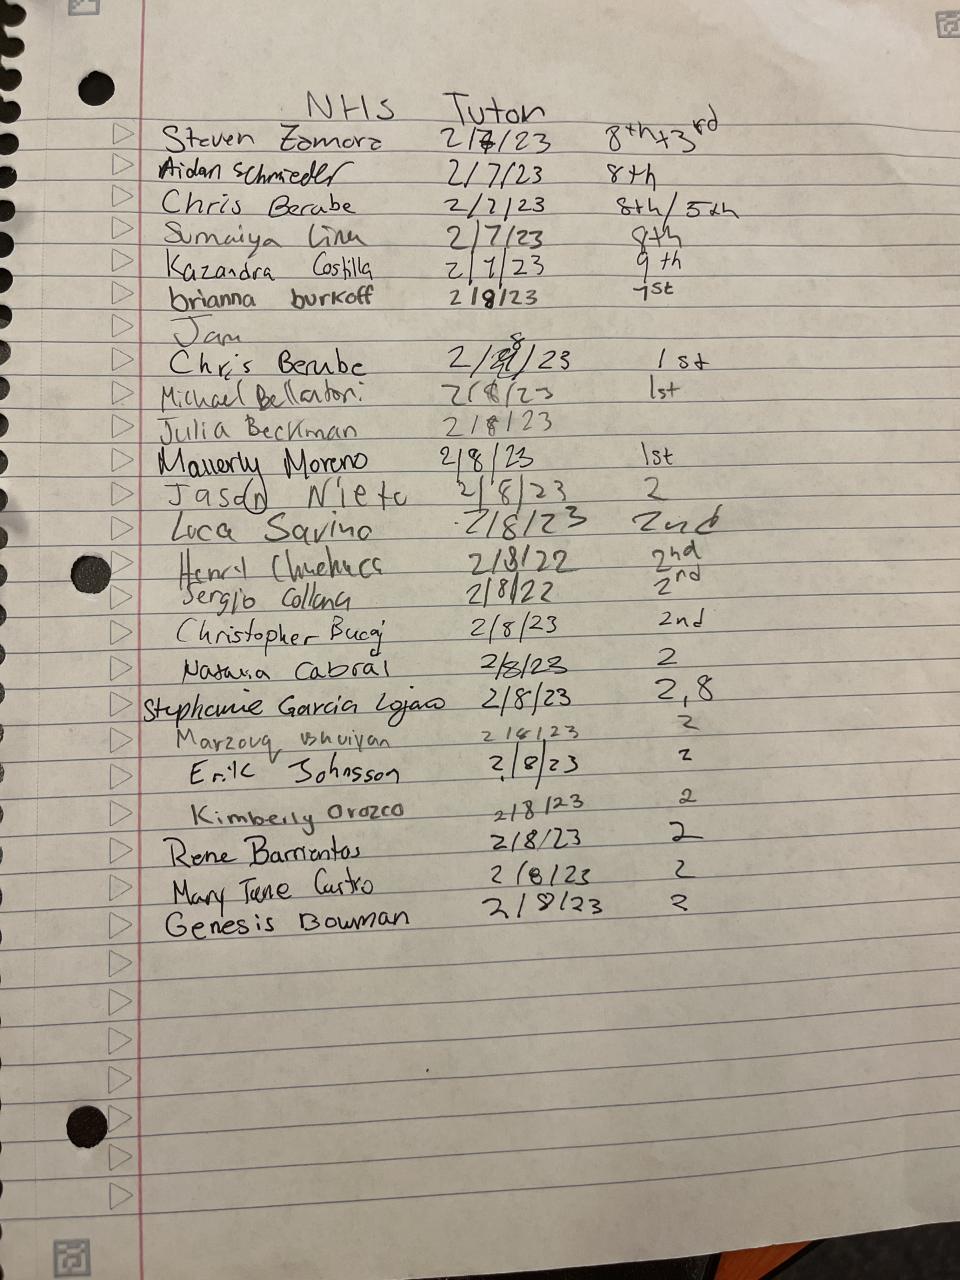 NHS Tutor
Steven Zamora 2/7/23 8th+3rd
Aidan Schmieder 2/7/23 8th
Chris Berube 2/7/23 8th/5th
Sumaiya 2/7/23 8th
Kazandra Costilla 2/7/23 9th
brianna burkoff 2/8/23 1st
Jam
Chris Berube 2/8/23 1st
Michael Bellantoni 2/8/23 1st
Julia Beckman 2/8/23
Mallerly Moreno 2/8/23 1st
Jason Nieto 2/8/23 2
Luca Savino 2/8/23 2nd
Henry 2/8/22 2nd
Sergio Collana 2/8/22 2nd
Christopher Bucaj 2/8/23 2nd
Cabral 2/8/23 2
Stephanie Garcia Lojano 2/8/23 2,8
Marzouq Bhuiyan 2/8/23 2
Erik Johnsson 2/8/23 2
Kimberly Orozco 2/8/23 2
Rene Barrientos 2/8/23 2
Mary Jane Castro 2/8/23 2
Genesis Bowman 2/8/23 2